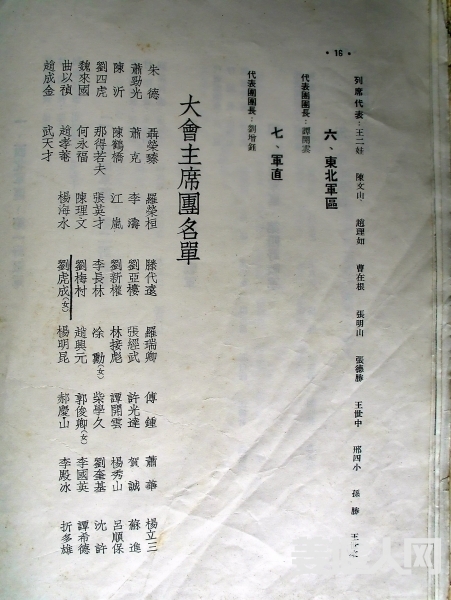 • 16 •
列席代表：王二娃 陳文山 趙理如 曹在根 張明山 張德勝 王世中 邢四小 孫勝 王
六、東北軍區
代表團團長：譚開雲
七、軍直
代表團團長：劉增鈺
大會主席團名單
朱德 聶榮臻 羅榮桓 滕代遠 羅瑞卿 傅鍾 蕭華 楊立三
蕭勁光 蕭克 李濤 劉亞樓 張經武 許光達 賀誠 蘇進
陳沂 陳鶴橋 江嵐 劉新權 林接彪 譚開雲 楊秀山 呂順保
劉四虎 那得若夫 張英才 李長林 徐勳(女) 柴學久 劉奎基 沈許
魏來國 何永福 陳理文 劉梅村 趙興元 郭俊卿(女) 李國英 譚希德
曲以禎 趙孝菴 楊海水 劉虎成(女) 楊明昆 郝慶山 李殿冰 折多雄
趙成金 武天才